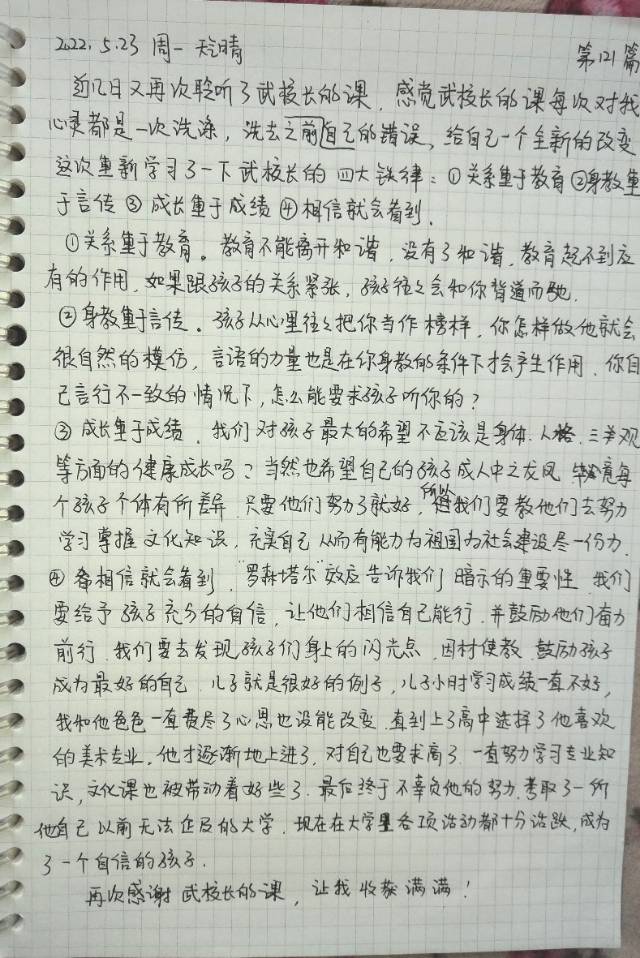 2022.5.23 周一 天晴 第121篇
近几日又再次聆听了武校长的课，感觉武校长的课每次对我
心灵都是一次洗涤，洗去之前自己的错误、给自己一个全新的改变
这次重新学习了一下武校长的 四大铁律：①关系重于教育②身教重
于言传③成长重于成绩④相信就会看到.
①关系重于教育。教育不能离开和谐，没有了和谐，教育起不到应
有的作用，如果跟孩子的关系紧张，孩子往々会和你背道而驰.
②身教重于言传。孩子从心里往々把你当作榜样，你怎样做他就会
很自然的模仿，言语的力量也是在你身教的条件下才会产生作用，你自
己言行不一致的情况下，怎么能要求孩子听你的？
③成长重于成绩，我们对孩子最大的希望不应该是身体.人格.三关观
等方面的健康成长吗？当然也希望自己的孩子成人中之龙凤 每
个孩子个体有所差异 只要他们努力了就好，所以我们要教他们去努力
学习掌握文化知识，充实自己 从而有能力为祖国为社会建设尽一份力.
④ 相信就会看到 "罗森塔尔"效应告诉我们 暗示的重要性 我们
要给予孩子充分的自信，让他们相信自己能行，并鼓励他们奋力
前行 我们要去发现孩子们身上的闪光点，因材使教，鼓励孩子
成为最好的自己 儿子就是很好的例子，儿子小时学习成绩一直不好，
我和他爸爸一直费尽了心思也没能改变 直到上了高中选择了他喜欢
的美术专业，他才逐渐地上进了，对自己也要求高了 一直努力学习专业知
识，文化课也被带动着好些了 最后终于不辜负他的努力，考取了一所
他自己以前无法企及的大学，现在在大学里各项活动都十分活跃，成为
了一个自信的孩子.
再次感谢武校长的课，让我收获满满！